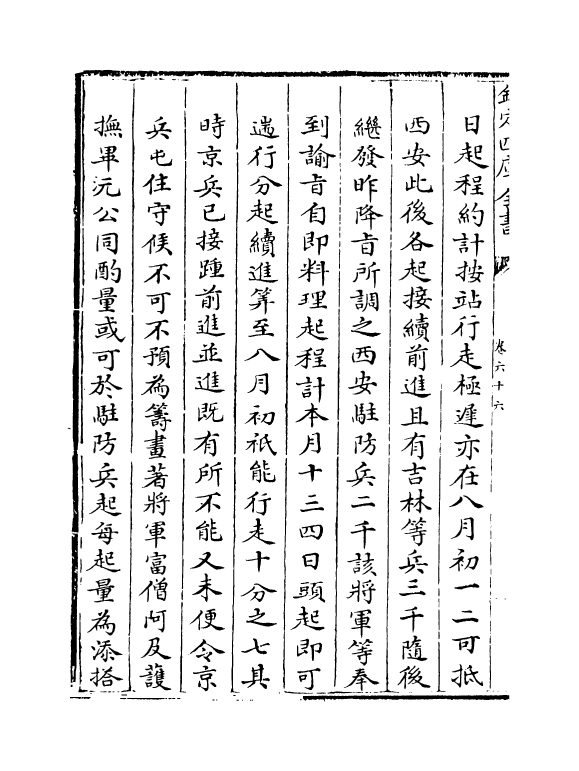 欽定四庫全書
卷六十六
日起程約計按站行走極遲亦在八月初一二可抵
西安此後各起接續前進且有吉林等兵三千隨後
繼發昨降㫖所調之西安駐防兵二千該將軍等奉
到諭㫖自即料理起程計本月十三四日頭起即可
遄行分起續進筭至八月初秖能行走十分之七其
時京兵已接踵前進並進既有所不能又未便令京
兵屯住守候不可不預為籌畫著將軍富僧阿及護
撫畢沅公同酌量或可於駐防兵起每起量為添搭